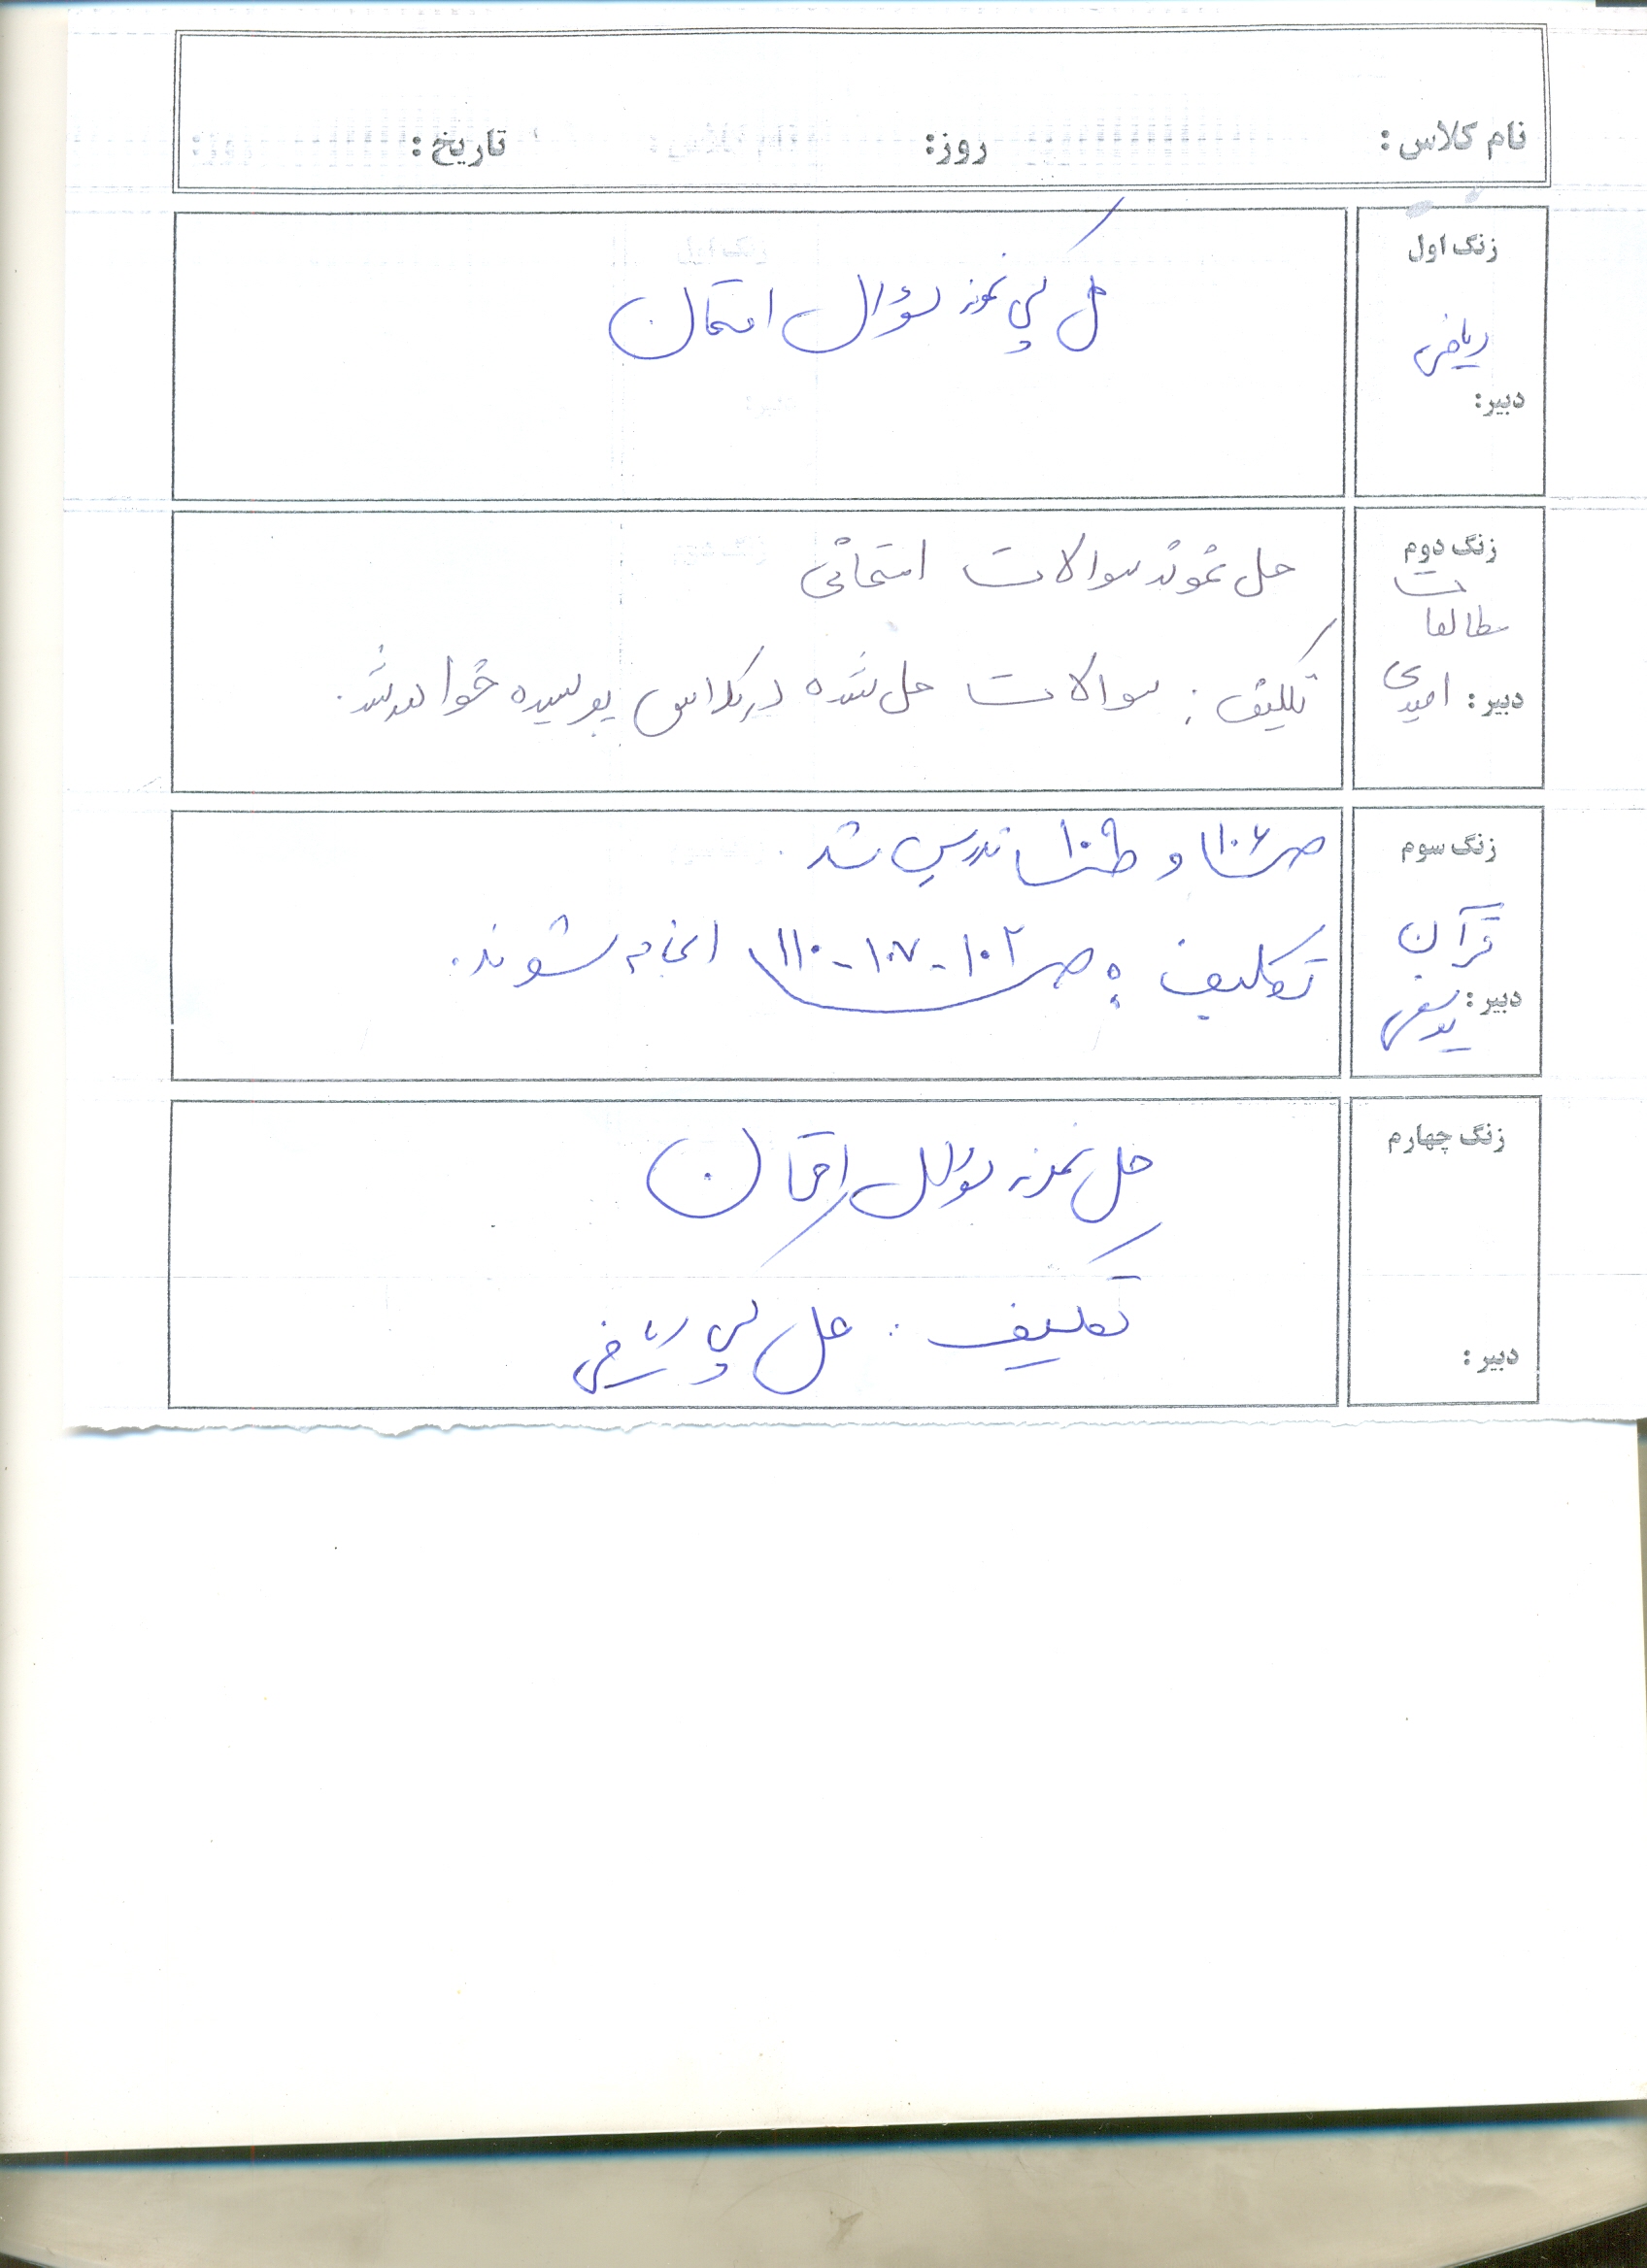 نام کلاس : روز: تاریخ :
زنگ اول
ریاضی
دبیر:
حل پلی نمونه سؤال امتحان
زنگ دوم
مطالعات
دبیر: امیدی
حل نمونه سوالات امتحانی
تکلیف: سوالات حل شده در کلاس پرسیده خواهد شد.
زنگ سوم
قرآن
دبیر: یوسفی
ص ۱۰۶ و ۱۰۹ تدریس شد.
تکلیف: ص ۱۰۲-۱۰۷-۱۱۰ انجام شوند.
زنگ چهارم
دبیر:
حل نمونه سؤال امتحان
تکلیف: حل پلی ریاضی